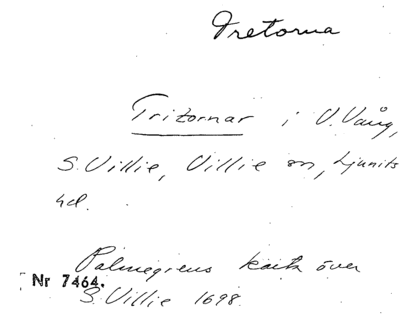 Tretorna
Tritornar i V. Vång,
S. Villie, Villie sn, Ljunits
hd.
Palmegrens karta över
Nr 7464.
S. Villie 1698.